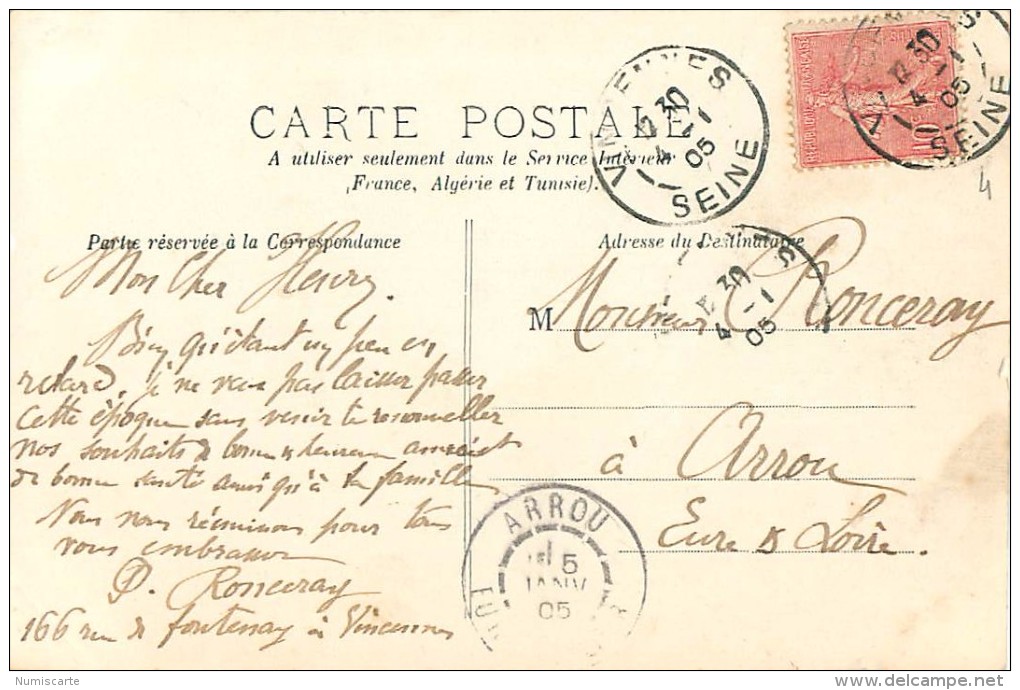 CARTE POSTALE
A utiliser seulement dans le Service Intérieur
(France, Algérie et Tunisie).
Partie réservée à la Correspondance
Adresse du Destinataire
Mon Cher Henry.
Bien qu'étant un peu en
retard, je ne veux pas laisser passer
cette époque sans venir te renouveller
nos souhaits de bonne & heureuse année et
de bonne santé ainsi qu'à ta famille
Nous nous réunissons pour tous
vous embrasser
P. Ronceray
166 rue de fontenay à Vincennes
M Monsieur Ronceray
à Arrou
Eure & Loire.
VINCENNES
12 30
4 - 1
05
SEINE
VINCENNES
12 30
4 - 1
05
SEINE
REPUBLIQUE FRANÇAISE
10c
4
12 30
4 - 1
05
ARROU
5
JANV
05
EURE
Numiscarte
delcampe.net